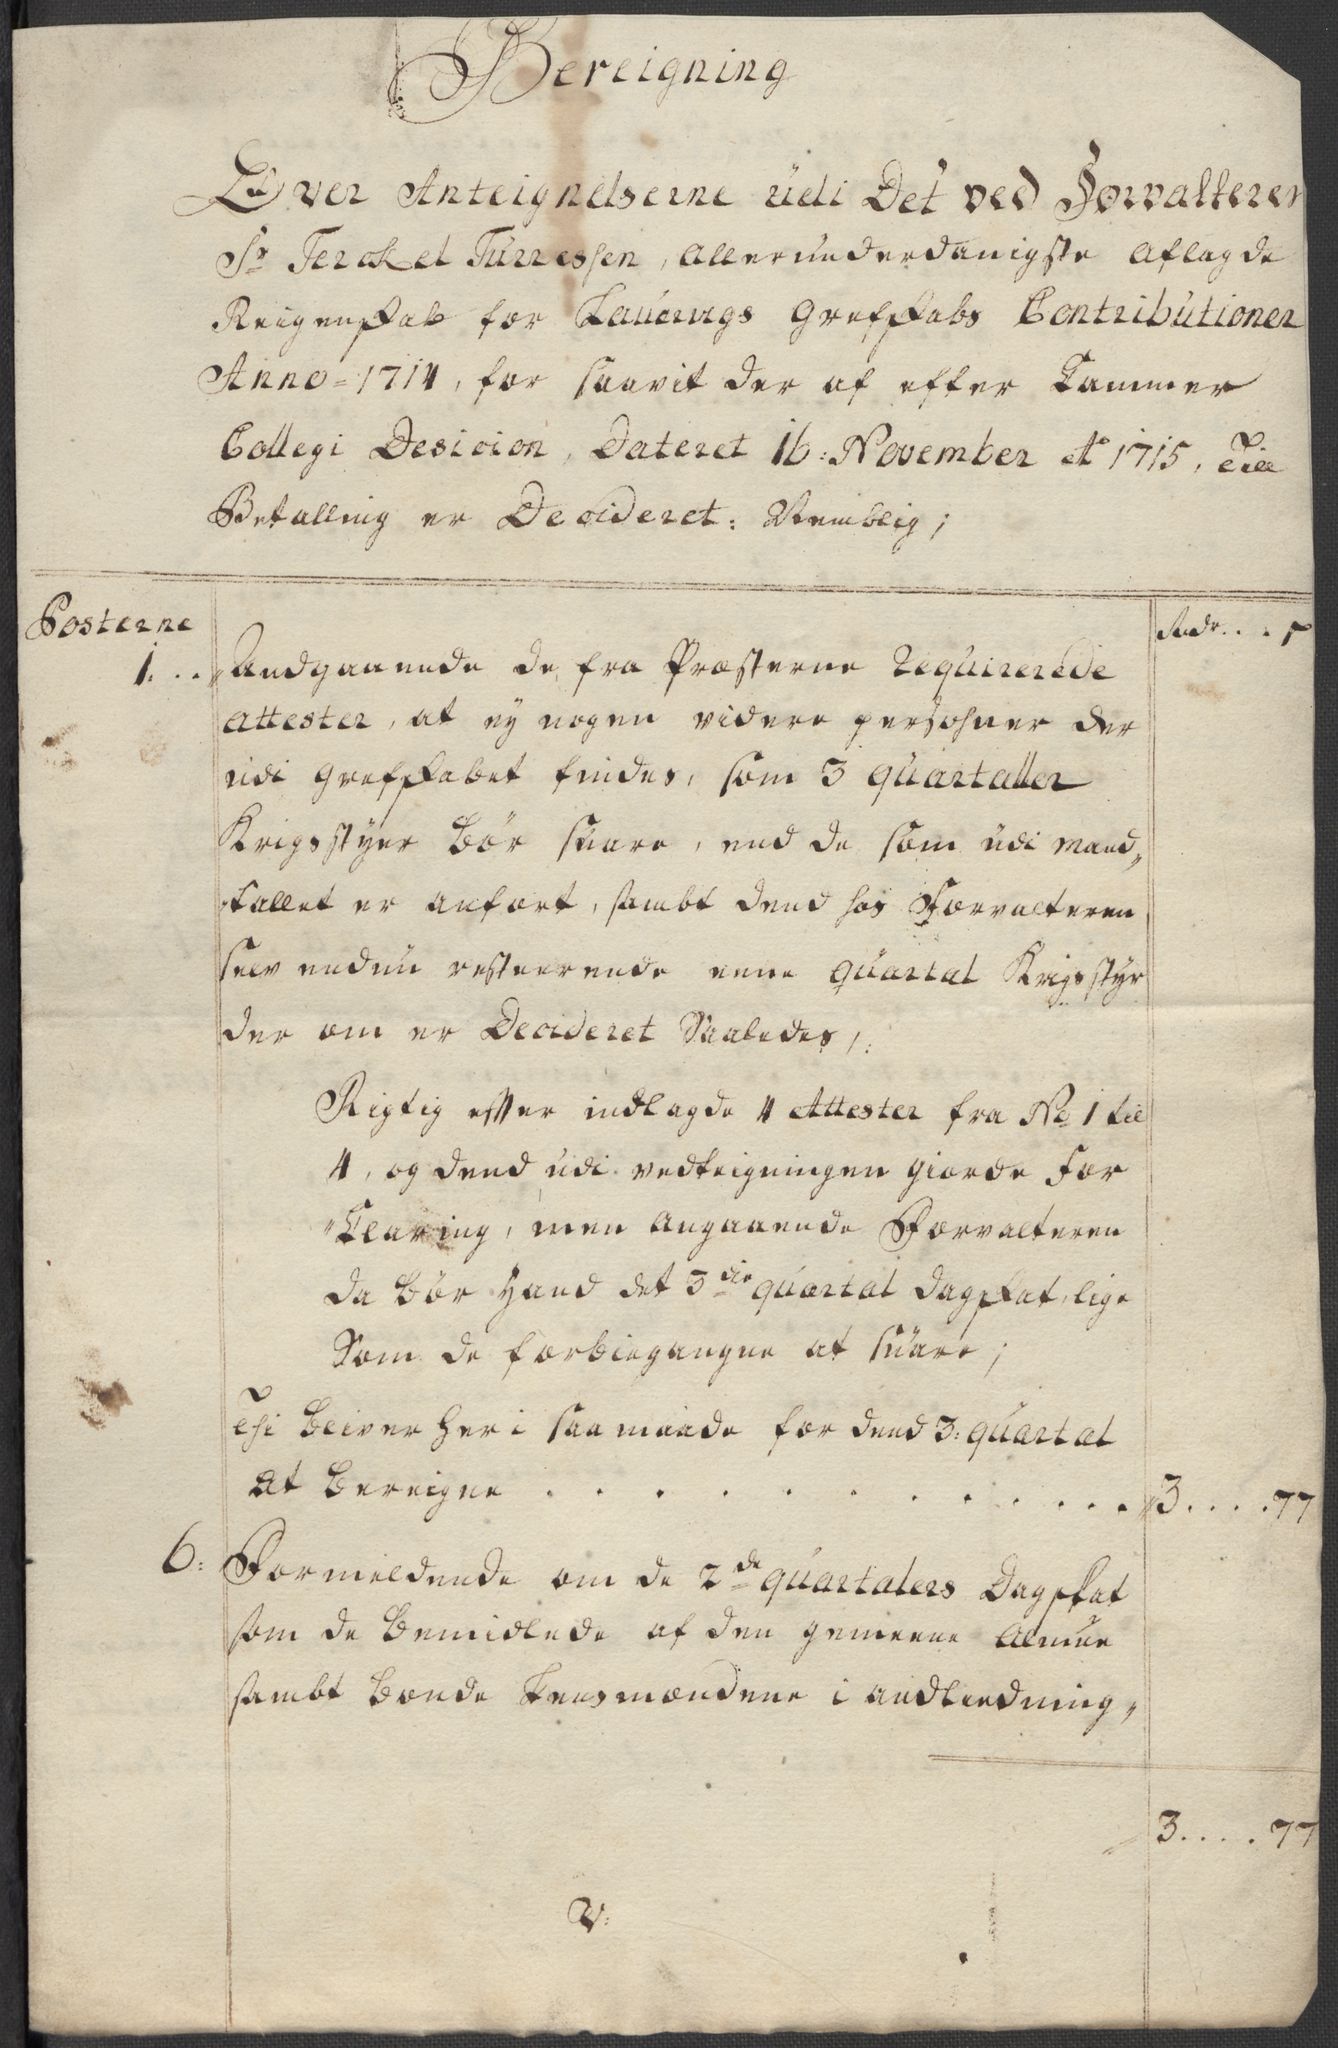 Bereigning
Over Anteignelserne udi Det ved Forvalteren
Sr. Terchel Turressen, Allerunderdanigste Aflagde
Reigenskab for Laurvigs Grefskabs Contributioner
Anno 1714, for saavit der af efter Cammer
Collegi Desicion, Dateret 16: November Ao 1715, Till
Betalling er Decideret: Nemblig;
Posterne
Rdr. . . s
1. . . Andgaaende de fra Præsterne Requirerede
Attester, at ey nogen videre persohner der
udi Grefskabet findes, som 3 quartaller
Krigsstyer bør svare, end de som udi Mand„
tallet er anført, sambt dend hos Forvalteren
selv endnu resteerende eene quartal Krigsstyr
der om er Decideret Saaledes,:
Rigtig efter indlagde 4 Attester fra No 1 til
4, og dend udi vedteigningen giorde For
„Claring, men angaaende Forvalteren
da bør Hand det 3die quartal dagskat, lige
Som de forbiegangne at svare;
Thi bliver her i saamaade for dend 3: quartal
at bereigne . . . . . . . . . . . 3 . . . . 77
6: Formeldende om de 2de quartalers Dagskat
som de bemidlede af den gemeene Almue
sambt bonde Lensmændene i andledning„
3 . . . . 77
V: